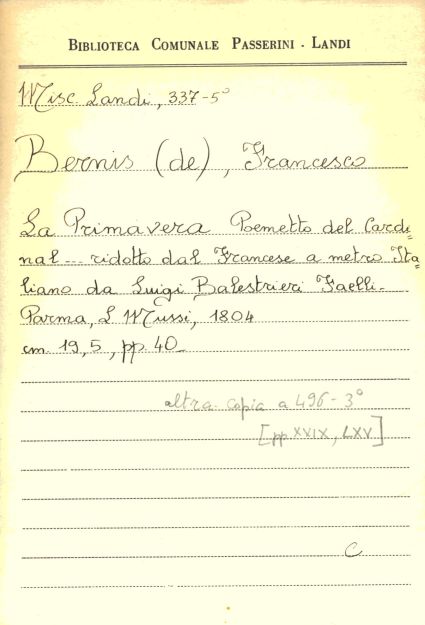 BIBLIOTECA COMUNALE PASSERINI - LANDI
Misc. Landi, 337-5°
Bernis (de), Francesco
La Primavera Poemetto del Cardi=
nal --- ridotto dal Francese a metro Ita=
liano da Luigi Balestrieri Faelli.
Parma, L. Mussi, 1804
cm. 19,5, pp. 40_
altra copia a 496-3°
[pp XVIX, LXV]
C